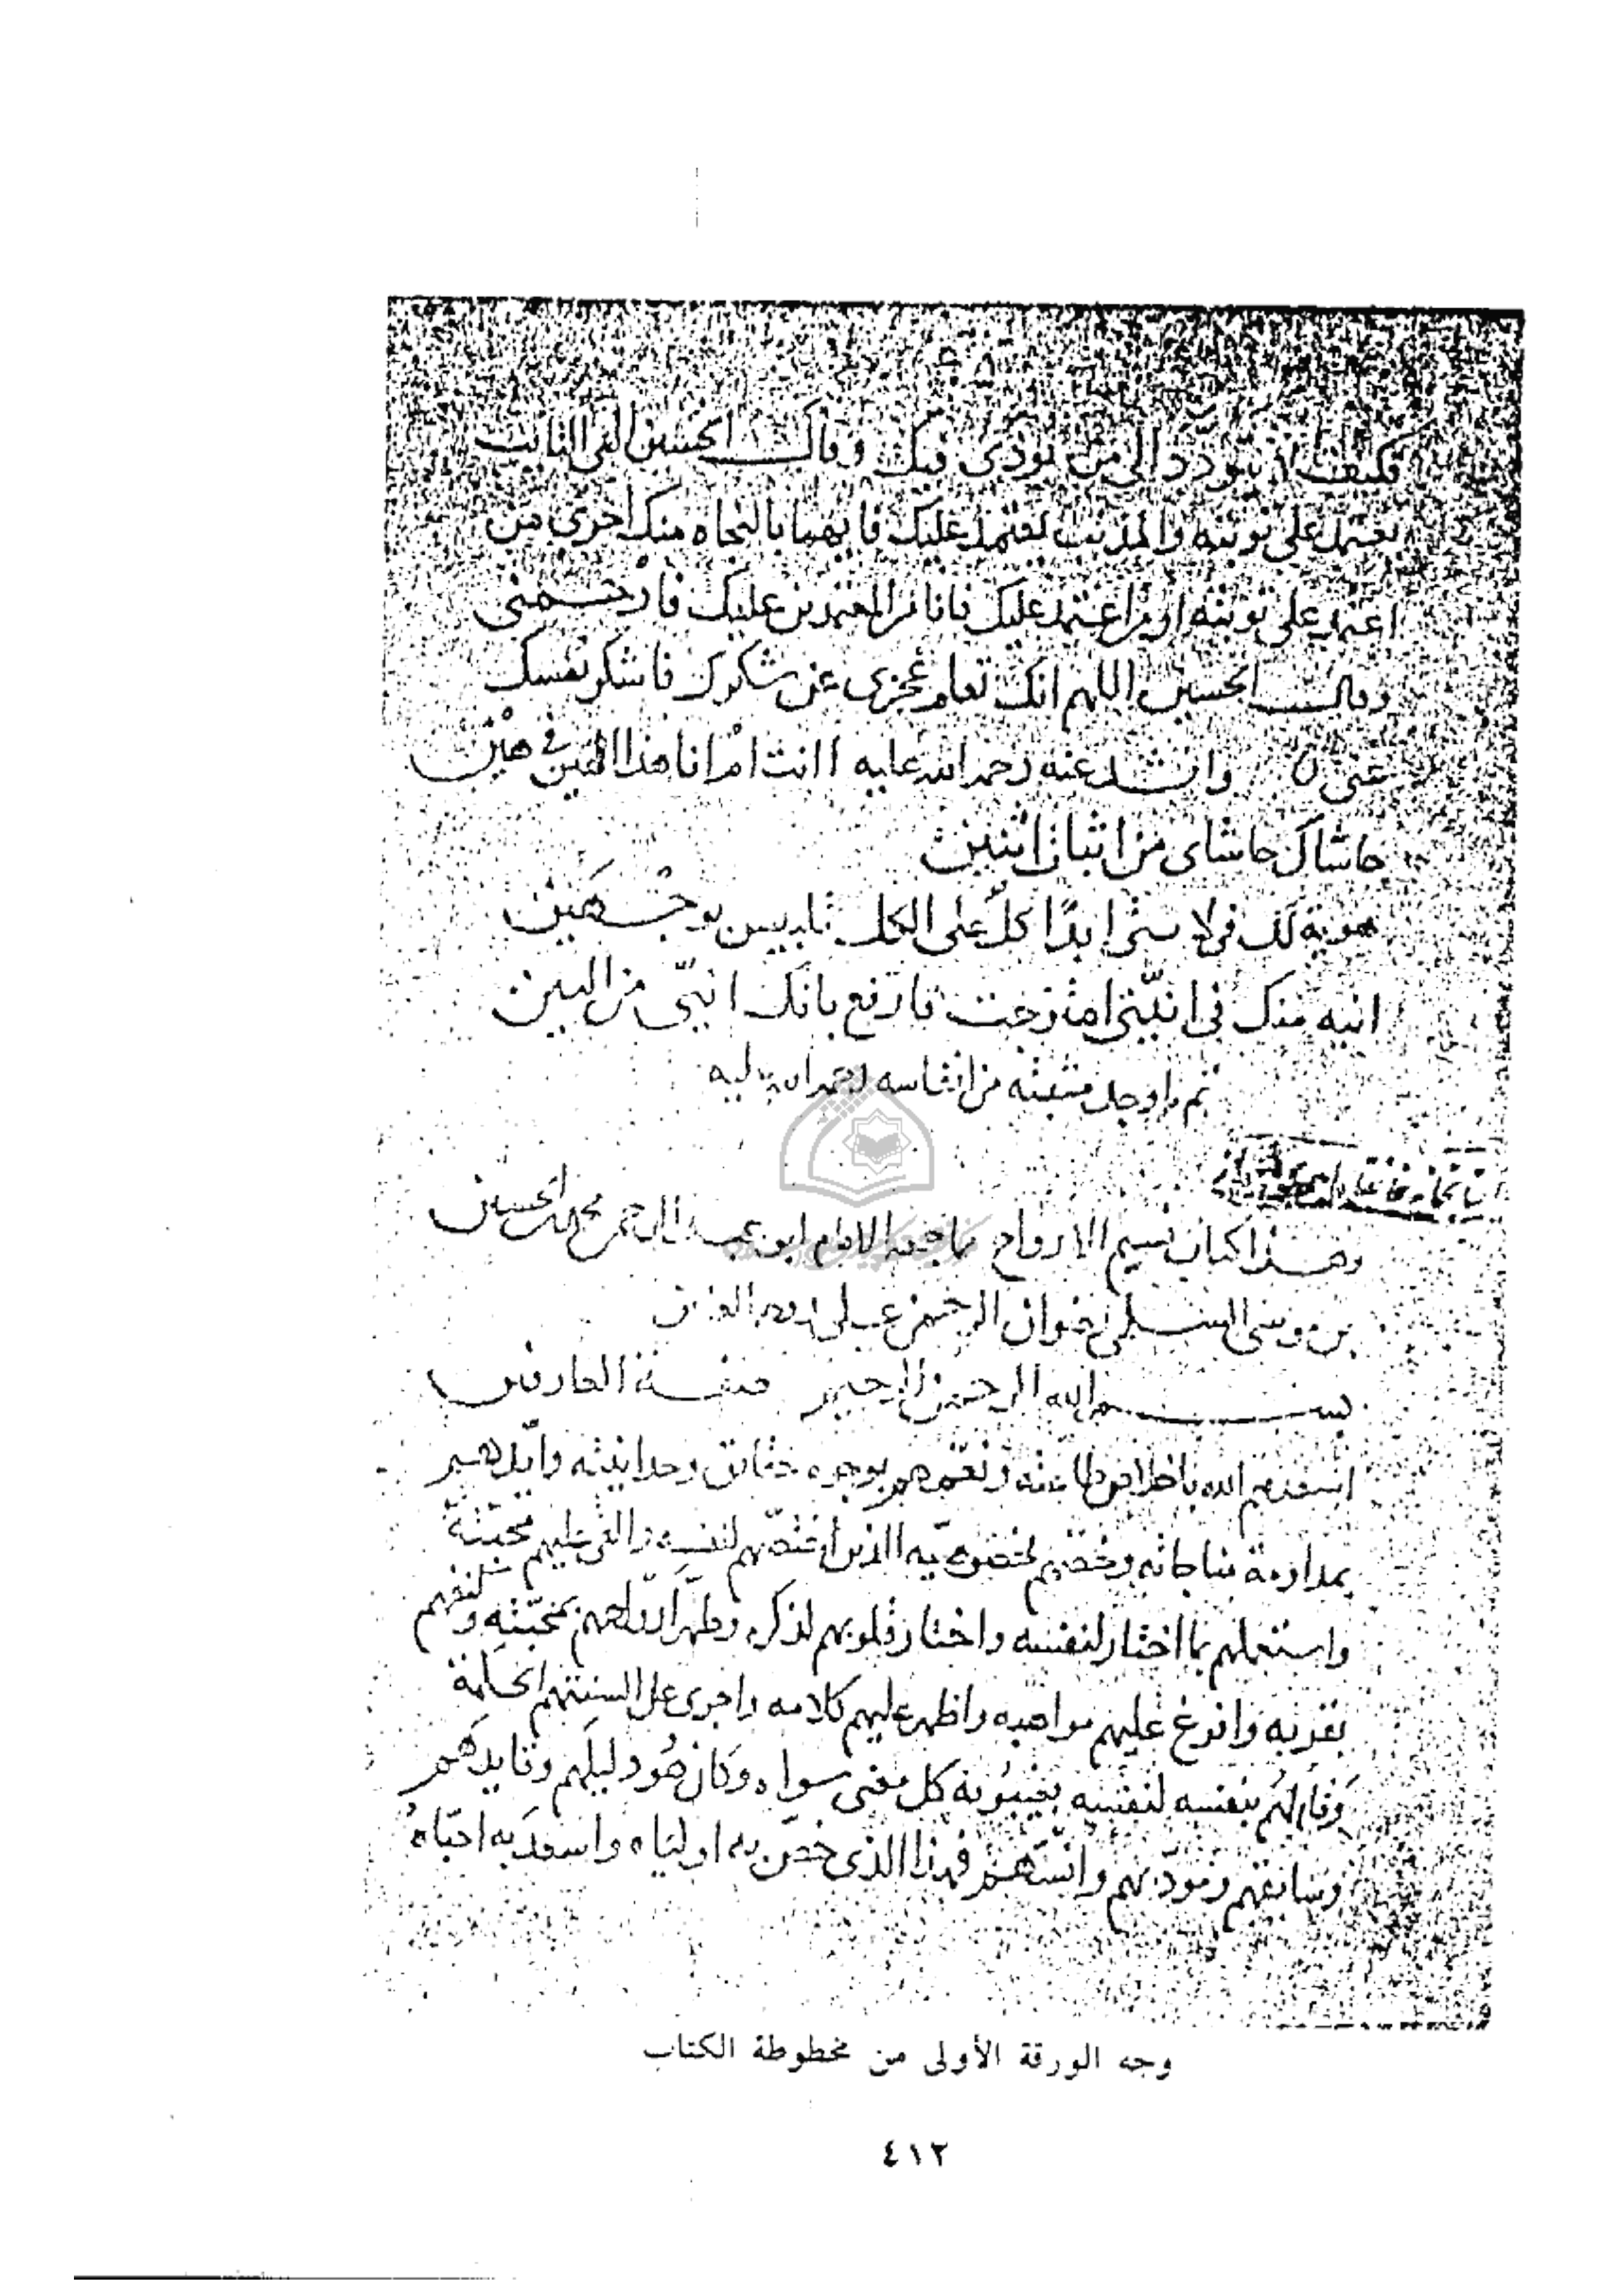 فكيف لا يتودد الى من يوذى فيك وقال الحسين الهى التائب
يعتمد على توبته والمذنب يعتمد عليك فايهما بالنجاه منك احرى من
اعتمد على توبته او من اعتمد عليك فانا من المعتمدين عليك فارحمنى
وقال الحسين اللهم انك تعلم عجزى عن شكرك فاشكر نفسك
عنى وانشد عنه رحمه الله عليه اانت ام انا هذا العين فى عين
حاشاك حاشاى من اثبات اثنين
هوية لك فى لاىىتى ابدا كل على الكل تلبيس بوجهين
انيه منك فى انيتى امتزجت فارفع بانك انيى من البين
تم ما وجد مثبته من انفاسه
وهذا كتاب نسيم الارواح مما جمعه الامام ابو عبد الرحمن محمد بن الحسين
بن موسى السلمى رضوان الرحمن
بسم الله الرحمن الرحيم صفة العارفين
اسعدهم الله باخلاص طاعته ونعمهم بوجوه حقائق وحدانيته وايدهم
بمداومة مناجاته وخصهم بخصوصيه الذين اختصهم لنفسه والقى عليهم محبته
واستعملهم بما اختار لنفسه واختار قلوبهم لذكره وطهر ارواحهم بمحبته وكنفهم
بقربه وافرغ عليهم مواهبه واظهر عليهم كلامه واجرى على السنتهم الحكمة
وقام لهم بنفسه لنفسه بغيبوبة كل معنى سواه وكان هو دليلهم وقايدهم
وسائقهم ومودبهم وانسهم فهذا الذى خص به اولياه واسعد به احباه
وجه الورقة الأولى من مخطوطة الكتاب
٤١٢